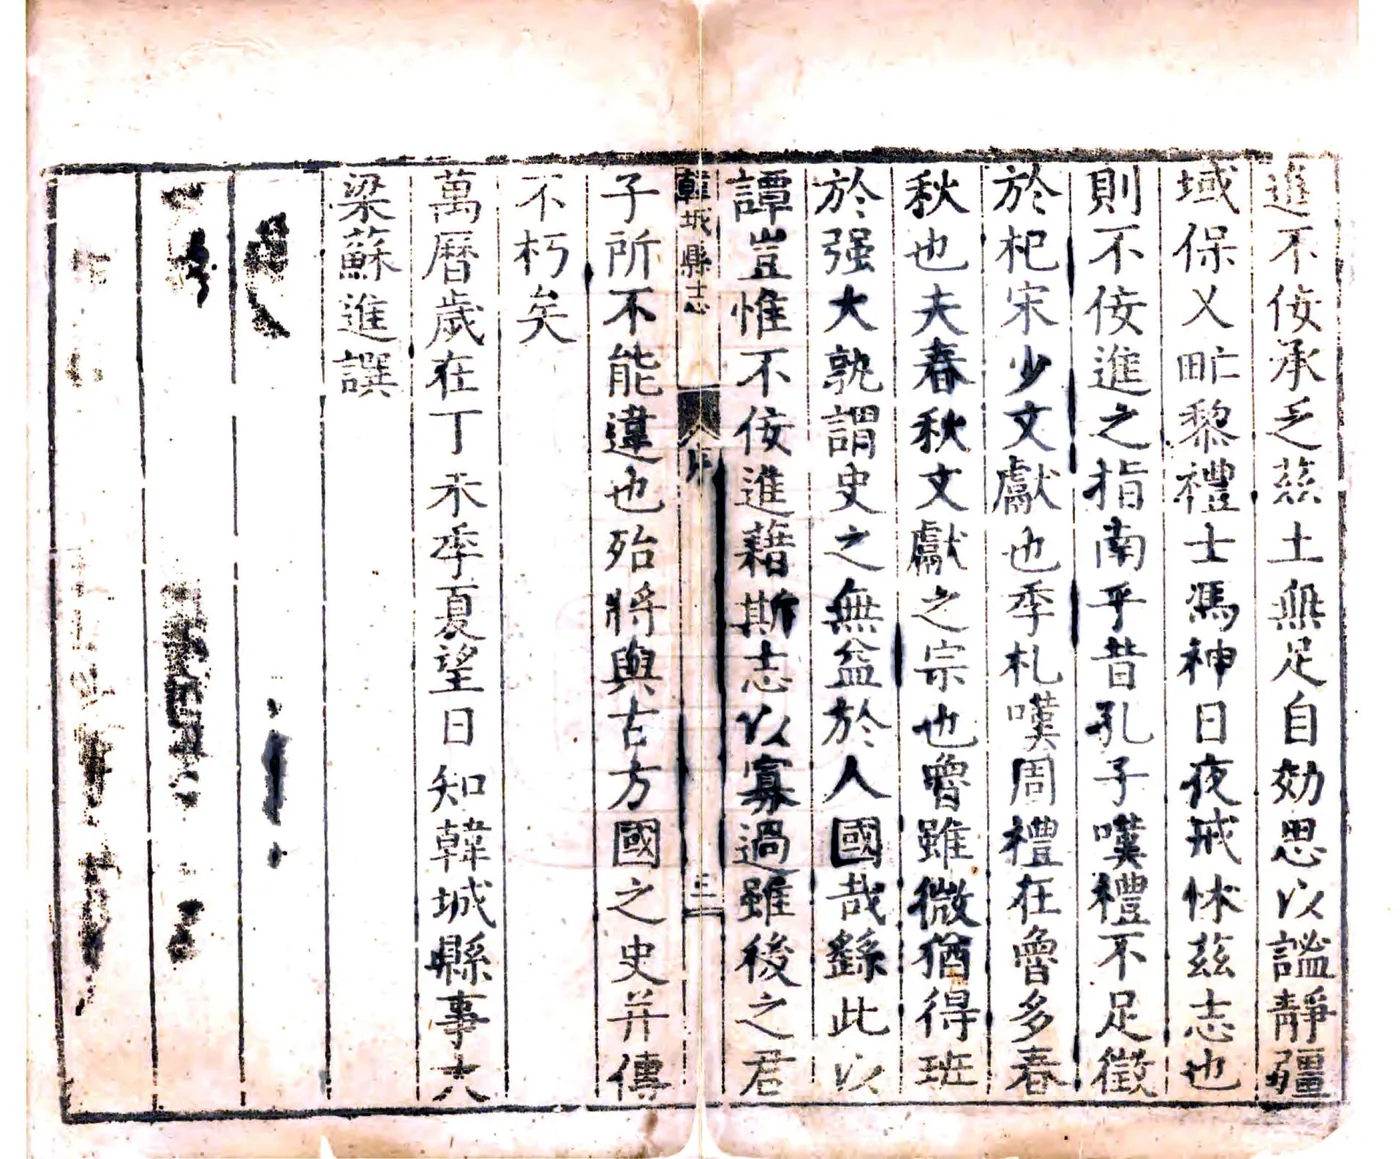 進不佞承乏茲土無足自効思以謐靜疆
域保乂甿黎禮士馮神日夜戒怵茲志也
則不佞進之指南乎昔孔子嘆禮不足徵
於杞宋少文獻也季札嘆周禮在魯多春
秋也夫春秋文獻之宗也魯雖微猶得班
於强大孰謂史之無益於人國哉繇此以
譚豈惟不佞進藉斯志以寡過雖後之君
韓城縣志
序
三
子所不能違也殆將與古方國之史并傳
不朽矣
萬曆歲在丁未季夏望日知韓城縣事大
梁蘇進譔